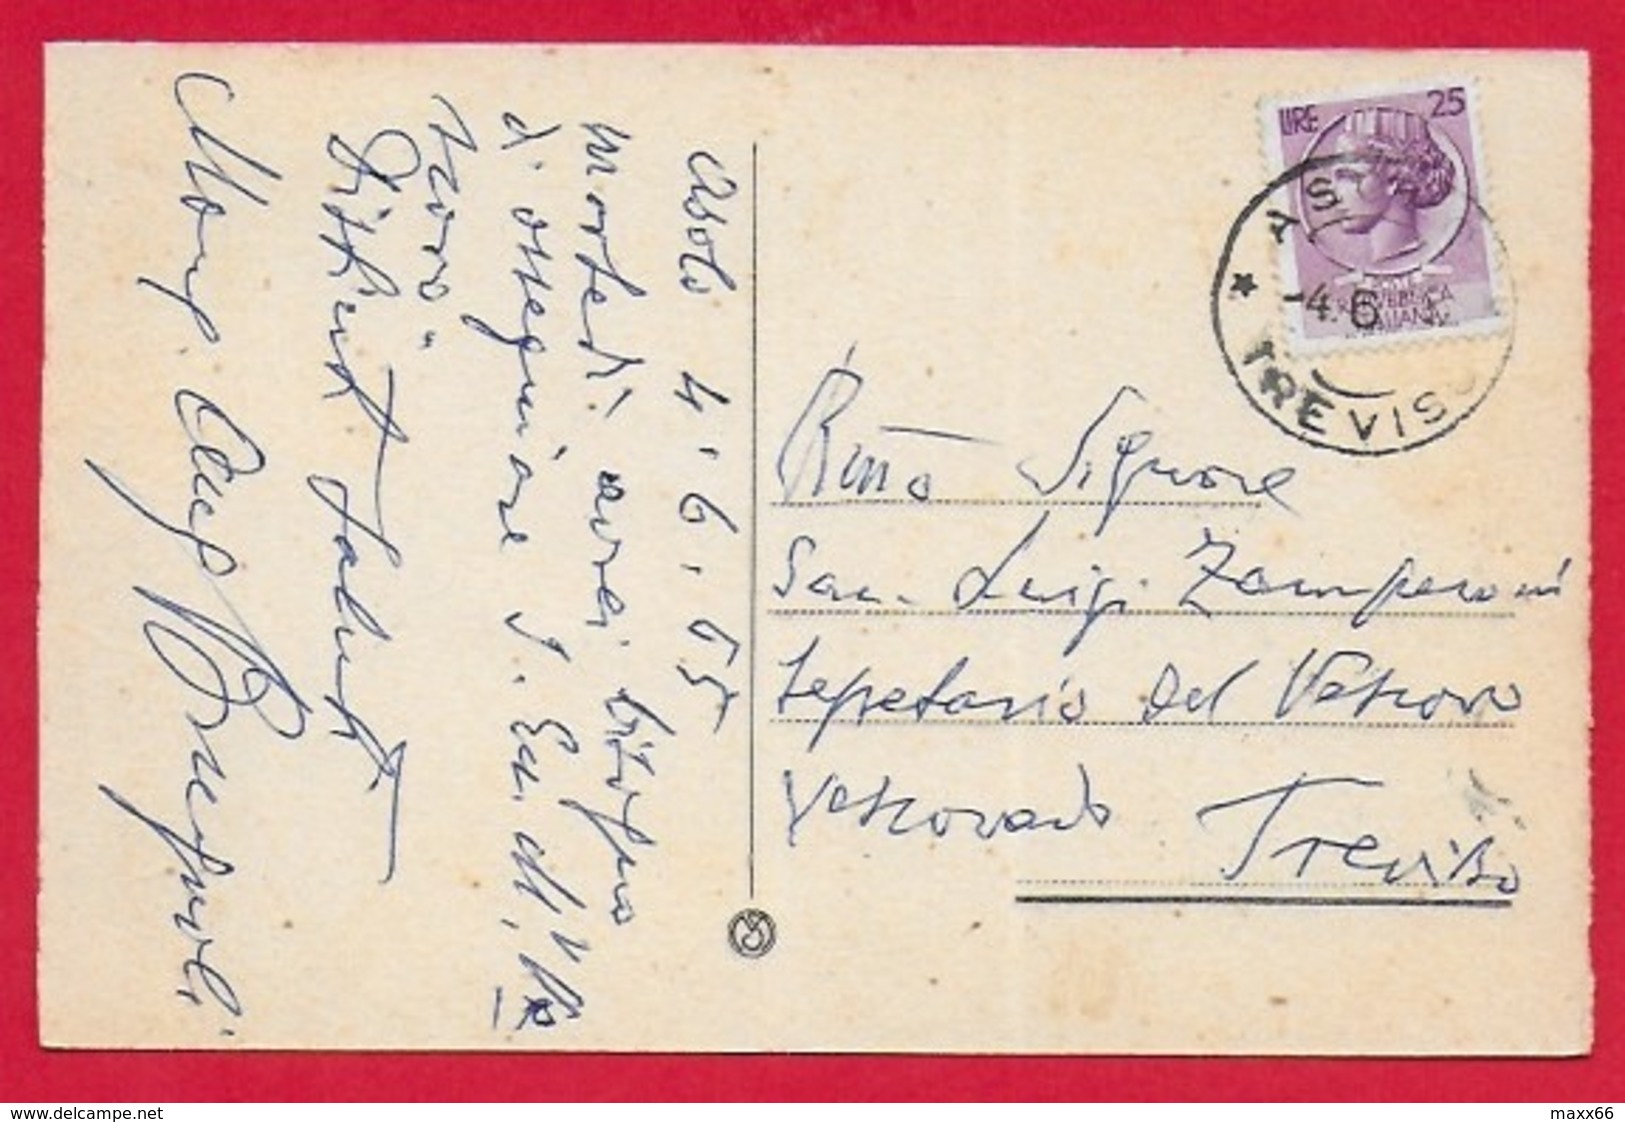 Asolo 4.6.65
martedì avrei bisogno
d'ossequiare S. Ecc. M.
Distinti saluti
Mons.
LIRE 25
REPUBBLICA
ITALIANA
AS
-4.6
* TREVISO
Rev.mo Signore
San. Luigi Zamperoni
Segretario del Vescovo
Vescovado Treviso
www.delcampe.net
maxx66